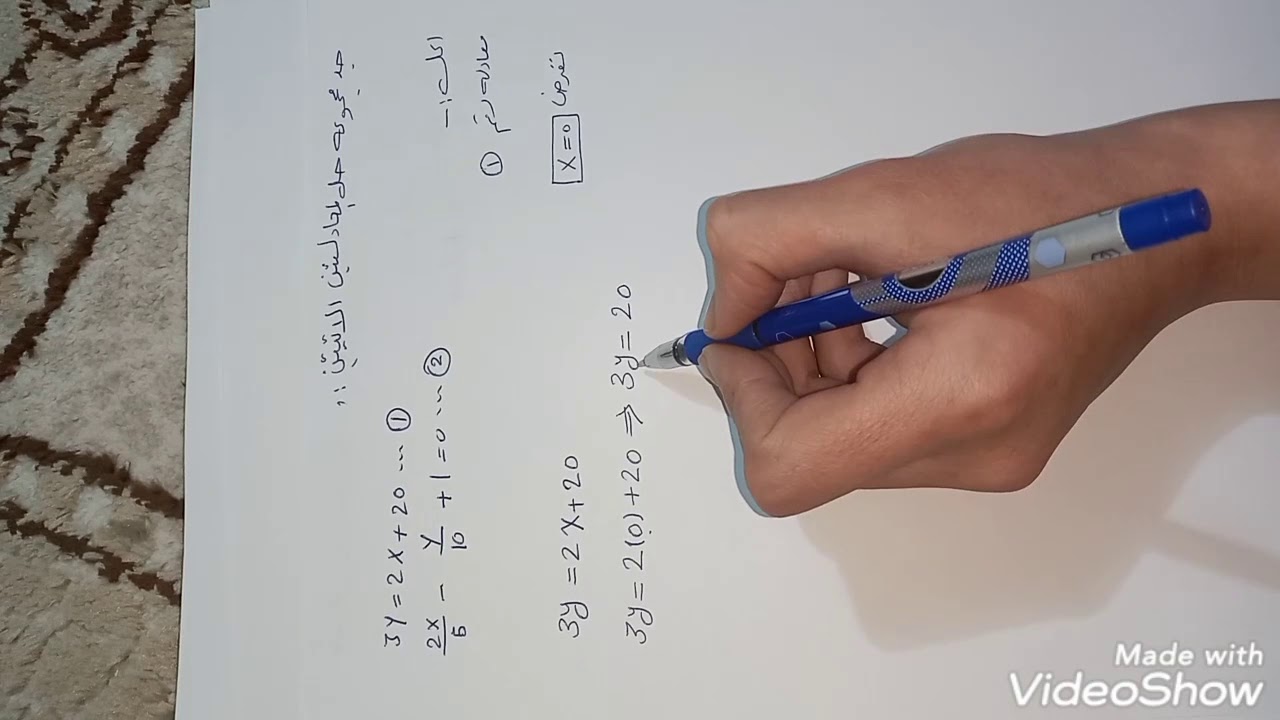 جد مجموعة حل المعادلتين الآتيتين :,
3y = 2x + 20 ... ①
2x/5 - y/10 + 1 = 0 ... ②
الحل :-
معادلة رقم ①
3y = 2x + 20
نفرض x = 0
3y = 2(0) + 20 ⇒ 3y = 20
Made with
VideoShow